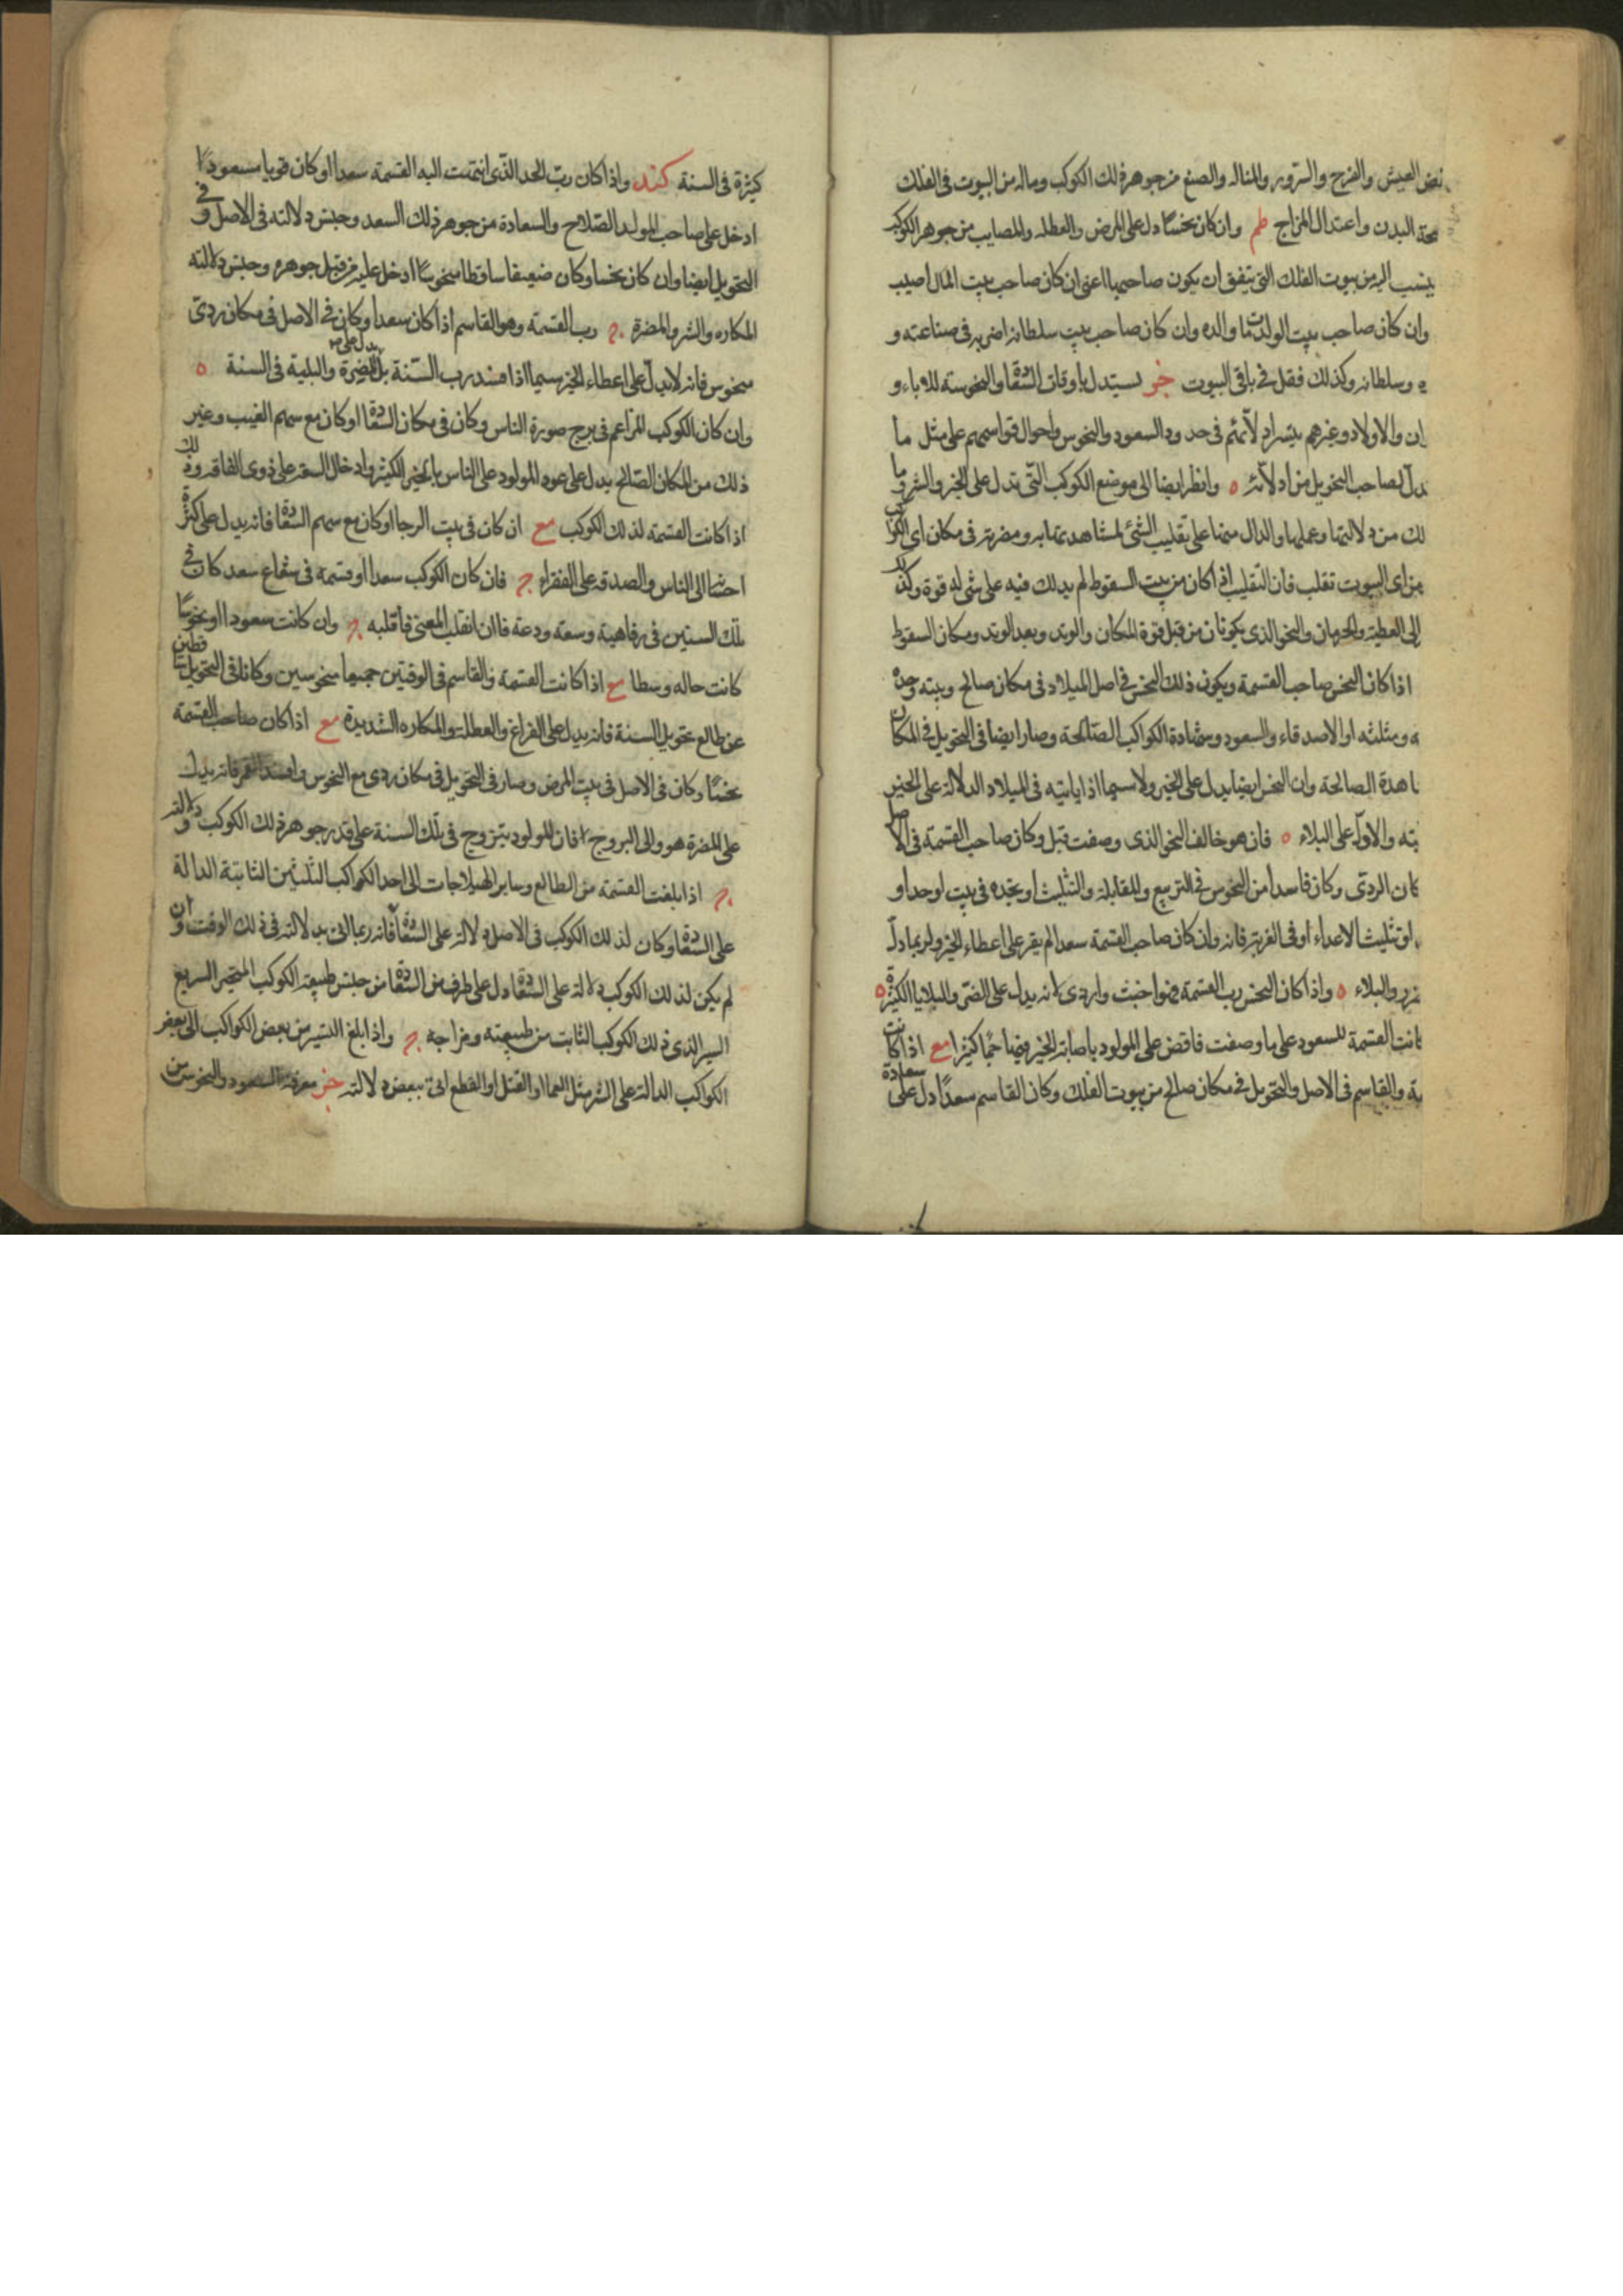 العيش والفرح والسرور والمناله والصنع من جوهر ذلك الكوكب وماله من البيوت فى الفلك
البدن واعتدال المزاج طم وان كان نحسا دل على المرض والعطله والمصايب من جوهر الكوكب
ينسب اليه من بيوت الفلك التى يتفق ان يكون صاحبها اعنى ان كان صاحب بيت المال اصيب
وان كان صاحب بيت الولد مات والده وان كان صاحب بيت سلطانه اضر به فى صناعته و
وسلطانه وكذلك فقل فى باقى البيوت خر يستدل باوقات السعادة والنحوسه للاباء و
والاولاد وغيرهم بتسيير ادلائهم فى حدود السعود والنحوس واحوال قواسمهم على مثل ما
لصاحب التحويل من ادلائه ٥ وانظر ايضا الى موضع الكوكب التى تدل على الخير والشر وما
من دلالتها وعملها والدال منها على تقليب الشئ لمشاهدتها به ومضرته فى مكان اى الكواكب
من اى البيوت تقلب فان التقليب اذا كان من بيت السقوط لم يدلك فيه على شى له قوة وكذلك
الى العطية والحرمان والنحو الذى يكونان من قبل قوة المكان والوتد وبعد الوتد ومكان السقوط
اذا كان النحس صاحب القسمة ويكون ذلك النحس فى اصل الميلاد فى مكان صالح وبيته وحده
ومثلثه او الاصدقاء والسعود وشهادة الكواكب الصالحة وصار ايضا فى التحويل فى المكان
الصالحة وان النحس ايضا يدل على الخير ولا سيما اذا ياتيه فى الميلاد الدلالة على الخير
والاول على البلاء ٥ فان هو خالف النحو الذى وصفت قبل وكان صاحب القسمة فى الاصل
الردى وكان فاسدا من النحوس فى التربيع والمقابلة والتثليث او يحده فى بيت لوحدا و
تثليث الاعداء او فى الغربة فانه وان كان صاحب القسمة سعدا لم يقر على اعطاء الخير ولربما دل
والبلاء ٥ واذا كان النحس رب القسمة فهو اخبث واردى لانه يدل على الضر والبلايا الكثيرة ٥
كانت القسمة للسعود على ما وصفت فاقض على المولود باصابة الخير فيها حما كثيرا مع اذا كانت
والقاسم فى الاصل والتحويل فى مكان صالح من بيوت الفلك وكان القاسم سعدا دل على سعادة
كثيرة فى السنة كند واذا كان رب الحد الذى انتهت اليه القسمة سعدا او كان قويا مسعودا
ادخل على صاحب المولد الصلاح والسعادة من جوهر ذلك السعد وجنس دلالته فى الاصل وفى
التحويل ايضا وان كان نحسا وكان ضعيفا ساقطا منحوسا ادخل عليه من قبل جوهره وجنس دلالته
المكاره والشر والمضرة رب القسمة وهو القاسم اذا كان سعدا وكان فى الاصل فى مكان ردى
منحوس فانه لا يدل على اعطاء الخير سيما اذا فسد رب السنة بل يدل على المضرة والبلية فى السنة ٥
وان كان الكوكب المزاعم فى برج صورة الناس وكان فى مكان السعادة او كان مع سهم الغيب وغير
ذلك من المكان الصالح يدل على عود المولود على الناس بالخير الكثير وادخال السعر على ذوى الفاقه وذلك
اذا كانت القسمة لذلك الكوكب مع ان كان فى بيت الرجا او كان مع سهم السعادة فانه يدل على كثرة
احسانه الى الناس والصدقه على الفقراء فان كان الكوكب سعدا او قسمه فى شعاع سعد كان فى
تلك السنين فى رفاهية وسعة ودعة فان انقلب المعنى فاقلبه وان كانت سعودا او نحوسا
كانت حاله وسطا مع اذا كانت القسمة والقاسم فى الوقتين جميعا منحوسين وكانا فى التحويل ساقطين
عن طالع تحويل السنة فانه يدل على الفراغ والعطلة والمكاره الشديدة مع اذا كان صاحب القسمة
نحسا وكان فى الاصل فى بيت المرض وصار فى التحويل فى مكان ردى مع النحوس وافسد القمر فانه يدل
على المضرة هو والى البروج فان المولود يتزوج فى تلك السنة على قدر جوهر ذلك الكوكب ودلالته
اذا بلغت القسمة من الطالع وساير الهيلاجات الى احد الكواكب الثلثين الثابتة الدالة
على السعادة وكان لذلك الكوكب فى الاصل دلالة على السعادة فانه ربما اتى بدلالته فى ذلك الوقت وان
لم يكن لذلك الكوكب دلالة على السعادة دل على طرف من السعادة من جنس طبيعة الكوكب المتحير السريع
السير الذى ذلك الكوكب الثابت من طبيعته ومزاجه واذا بلغ التسيير من بعض الكواكب الى بعض
الكواكب الدالة على الشر مثل العما او القتل او القطع اتى ببعض دلالته خر معرفة السعود والنحوس من